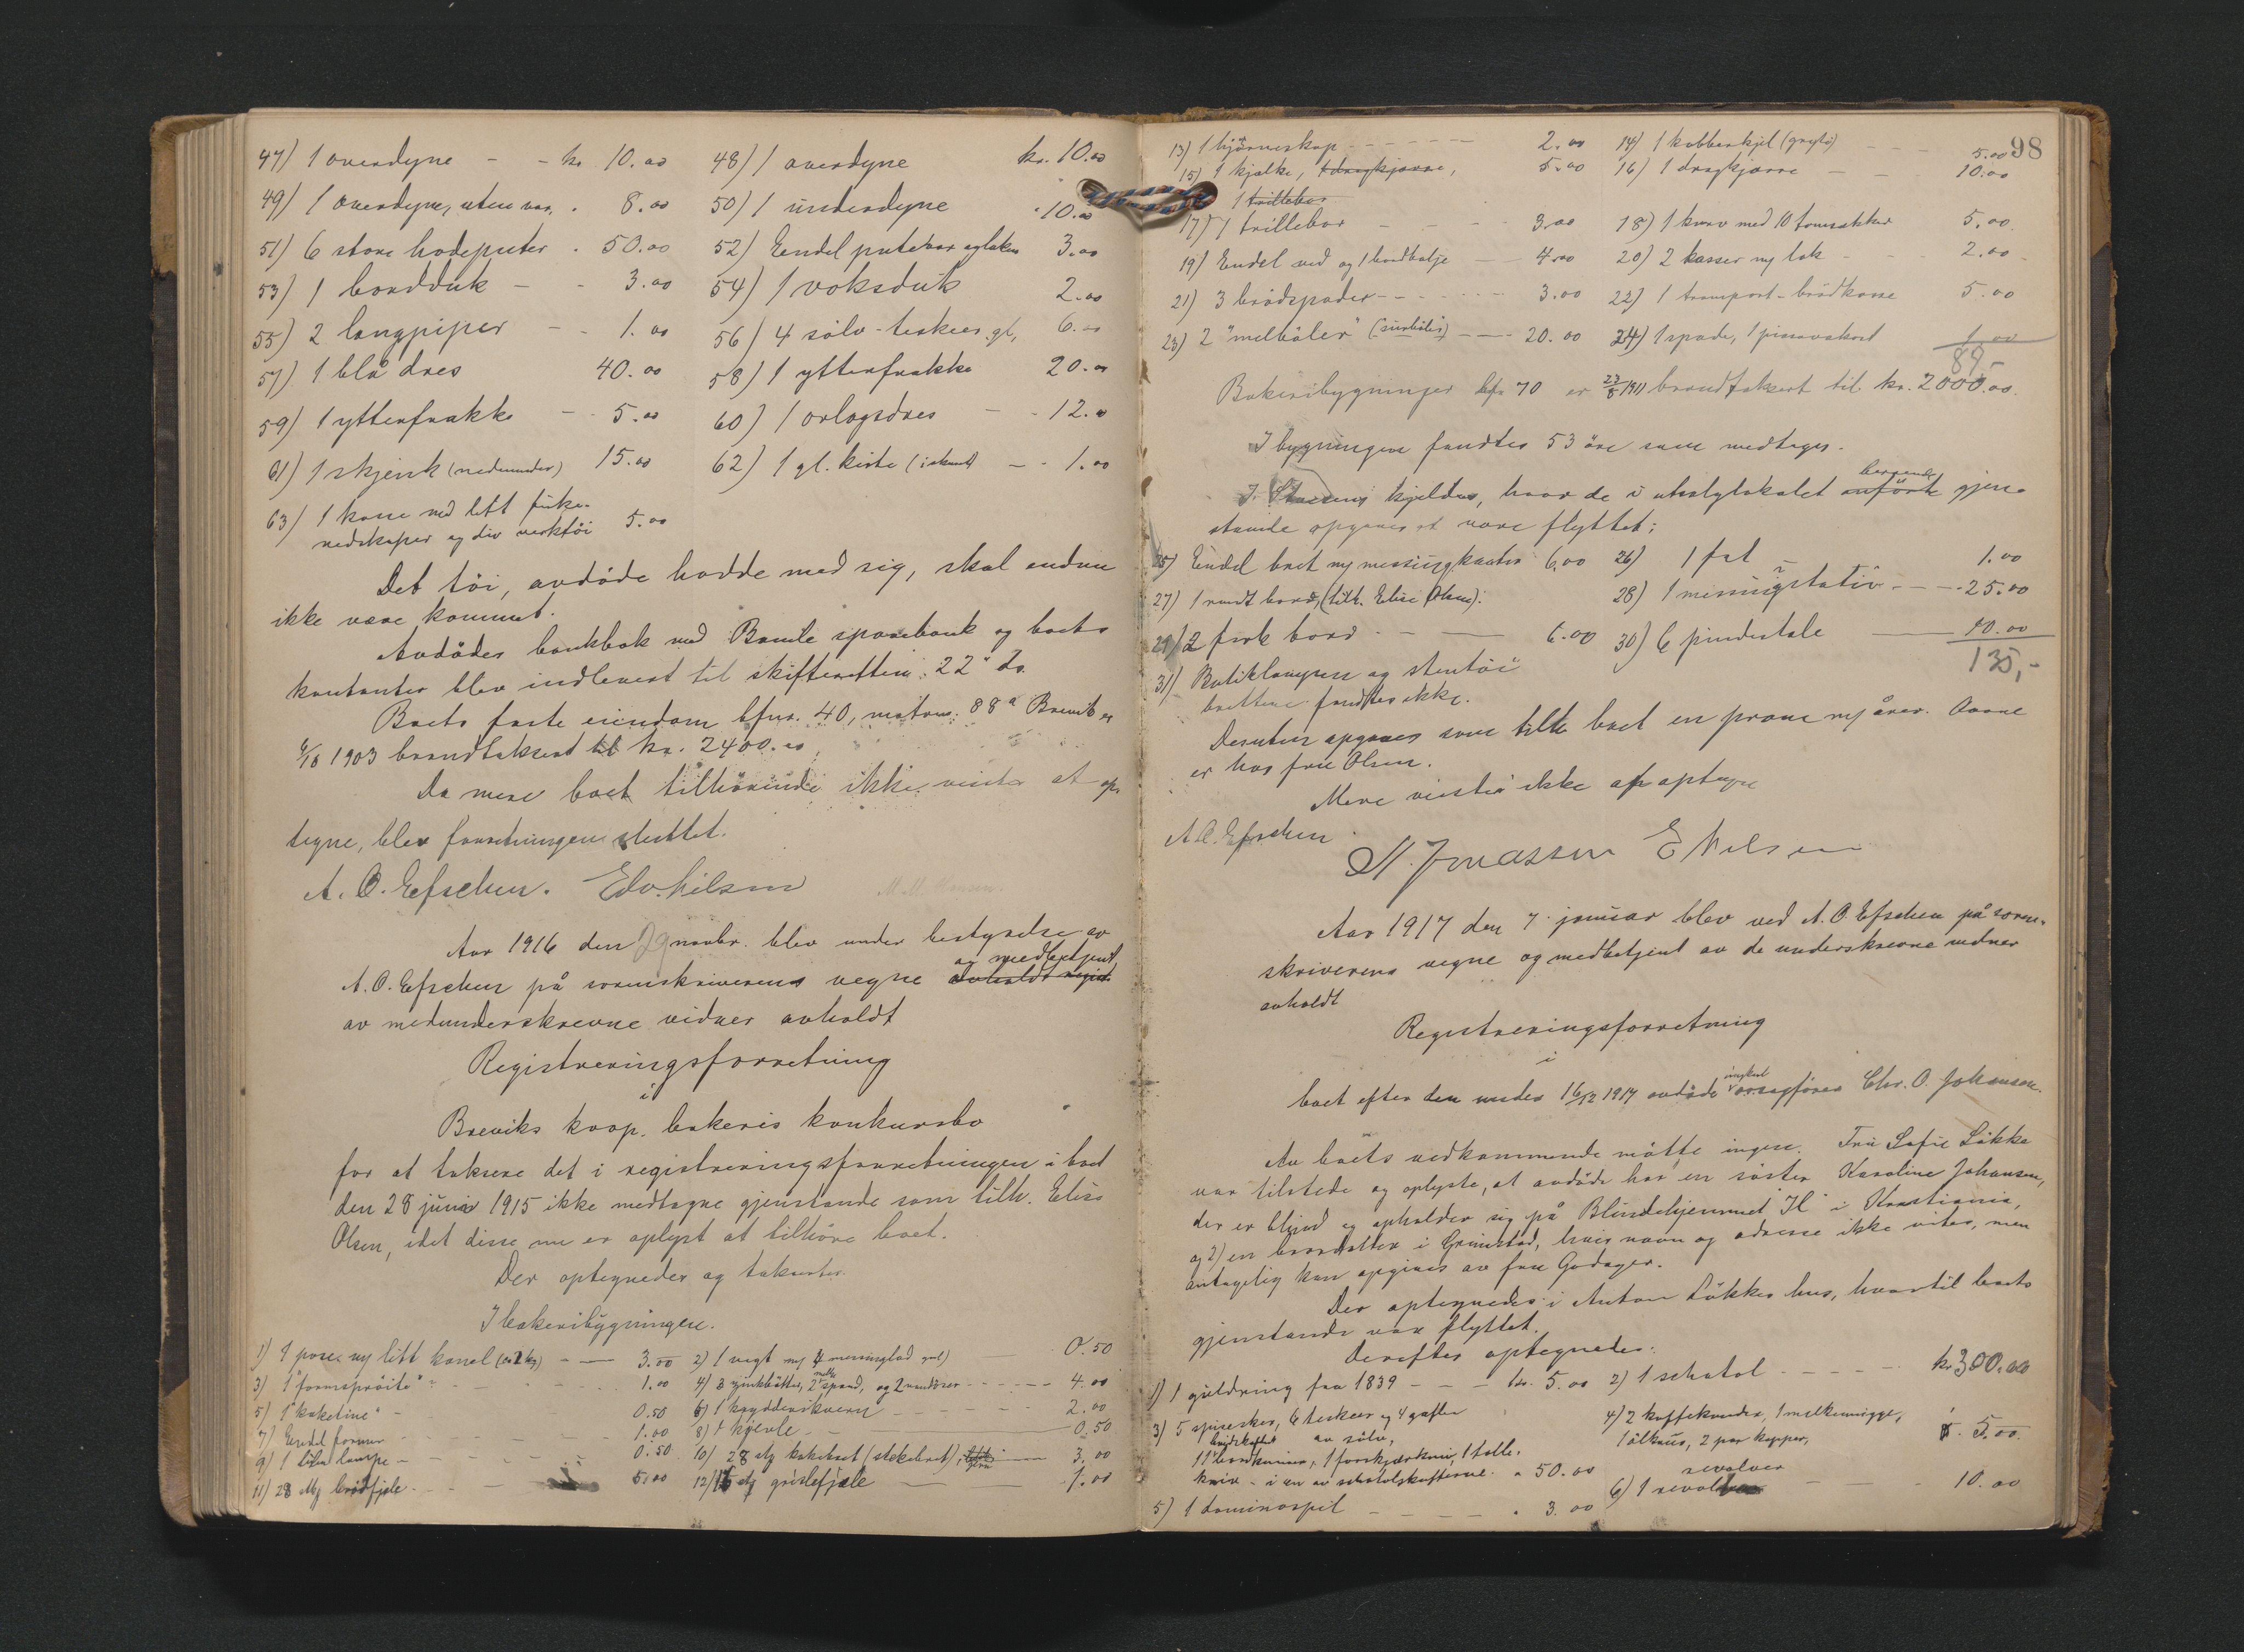 47) 1 overdyne - - kr. 10.00 48) 1 overdyne kr. 10.00
49) 1 overdyne, uten var, . 8.00 50) 1 underdyne " 10.00
51) 6 store hodeputer . 50.00 52) Endel putevar og laken 3.00
53) 1 bordduk - - 3.00 54) 1 voksduk 2.00
55) 2 langpiper - - 1.00 56) 4 sølv-teskeer, gl, 6.00
57) 1 blå dres 40.00 58) 1 ytterfrakke 20.00
59) 1 ytterfrakk - - 5.00 60) 1 orlogsdres - - 12.00
61) 1 skjenk (nedenunder) 15.00 62) 1 gl. kiste (i skuret) - - 1.00
63) 1 kasse med litt fiske-
redskaper og div verktöi 5.00
Det töi, avdöde hadde med sig, skal endnu
ikke være kommet.
Avdödes bankbok med Bamle sparebank og boets
kontanter blev indlevert til skifteretten 22' ds.
Boets faste eiendom bfnr. 40, matrnr. 88a Brevik er
6/10 1903 brandtaksert til kr. 2400.00
Da mere boet tilhörende ikke vistes at op-
tegne, blev forretningen sluttet.
A. O. Efschen. Edv. Nilsen
Aar 1916 den 29 novbr. blev under bestyrelse av
A. O. Efschen på sorenskriverens vegne avholdt regist. og medbetjent
av medunderskrevne vidner avholdt
Registreringsforretning
i
Breviks koop. bakeris konkursbo
for at taksere det i registreringsforretningen i boet
den 28 juni 1915 ikke medtagne gjenstande som tilh. Elise
Olsen, idet disse nu er oplyst at tilhöre boet.
Der optegnedes og taksertes.
I bakeribygningen.
1) 1 pose ny litt kanel (ca 2 kg) - - 3.00 2) 1 vegt m/ 4 messinglod 0.50
3) 1 "formspröite" - 1.00 4) 3 zinkbötter, 2 melkspand, og 2 - - - 4.00
5) 1 "kaketine" - 0.50 6) 1 krydderikvern - - - 2.00
7) Endel former 1.00 8) 1 kjevle - - 0.50
9) 1 liten lampe - 0.50 10) 28 stk kakebret (stekebret) 3.00
11) 28 stk brödfjele - - - 5.00 12) 15 stk grislefjele - 1.00
98
13) 1 hjörneskap - - - - - 2.00 14) 1 kobberkjel (gryte) - - - 5.00
15) 1 kjælke, 1 dragkjærre, 5.00 16) 1 dragkjærre - - 10.00
1 trillebor
17) 1 trillebor - - - 3.00 18) 1 kurv med 10 tomsækker 5.00
19) Endel ved og 1 vandbalje - 4.00 20) 2 kasser m/ lok - - 2.00
21) 3 brödspader - - - - - 3.00 22) 1 transport-brödkasse 5.00
23) 2 "melbåler" (surböler) - - 20.00 24) 1 spade, 1 piasavakost 1.00
89,-
Bakeribygningen bfnr 70 er 23/8 1911 brandtaksert til kr. 2000.00.
I bygningen fandtes 53 öre som medtages.
I kjelder, hvor de i utsalgslokalet anförte beroende gjen-
stande opgaves at være flyttet:
25) Endel bret m/ messingkanter 6.00 26) 1 fat - 1.00
27) 1 rundt bord, (tilh. Elise Olsen). 28) 1 messingstativ - - - 25.00
29) 2 firk bord - - - 6.00 30) 6 pindestole - 10.00
135,-
31) Butiklampen og stentöi
brettene fandtes ikke.
Desuten opgaves som tilh boet en pram m/ årer. Aarne
er hos fru Olsen.
Mere vistes ikke at optegne
A. O. Efschen N. Jonassen E Nilsen
Aar 1917 den 7. januar blev ved A. O. Efschen på soren-
skriverens vegne og medbetjent av de underskrevne vidner
avholdt
Registreringsforretning
i
boet efter den under 16/12 1917 avdöde ungkarl Chr. O. Johansen.
Av boets vedkommende mötte ingen. Fru Sofie Lökke
var tilstede og oplyste, at avdöde har en söster Karoline Johansen,
der er blind og opholder sig på Blindehjemmet "Il" i Kristiania,
og 2) en brordatter i Grimstad, hvis navn og adresse ikke vites, men
antagelig kan opgives av fru Godager.
Der optegnedes i Anton Lökkes hus, hvortil boets
gjenstande var flyttet.
Derefter optegnedes.
1) 1 guldring fra 1839 - - - kr. 5.00 2) 1 schatol - - - - kr. 300.00
3) 5 spiseskeer, 6 teskeer og 4 gafler 4) 2 kaffekander, 1 melkemugge,
av sölv, 1 ölkrus, 2 par kopper, 5.00.
11 bordkniver, 1 forskjærkniv, 1 tolle-
kniv - i en av schatolskufferne. " 50.00 revolver
5) 1 dominospil - - - - " 3.00 6) 1 revolver - - - 10.00